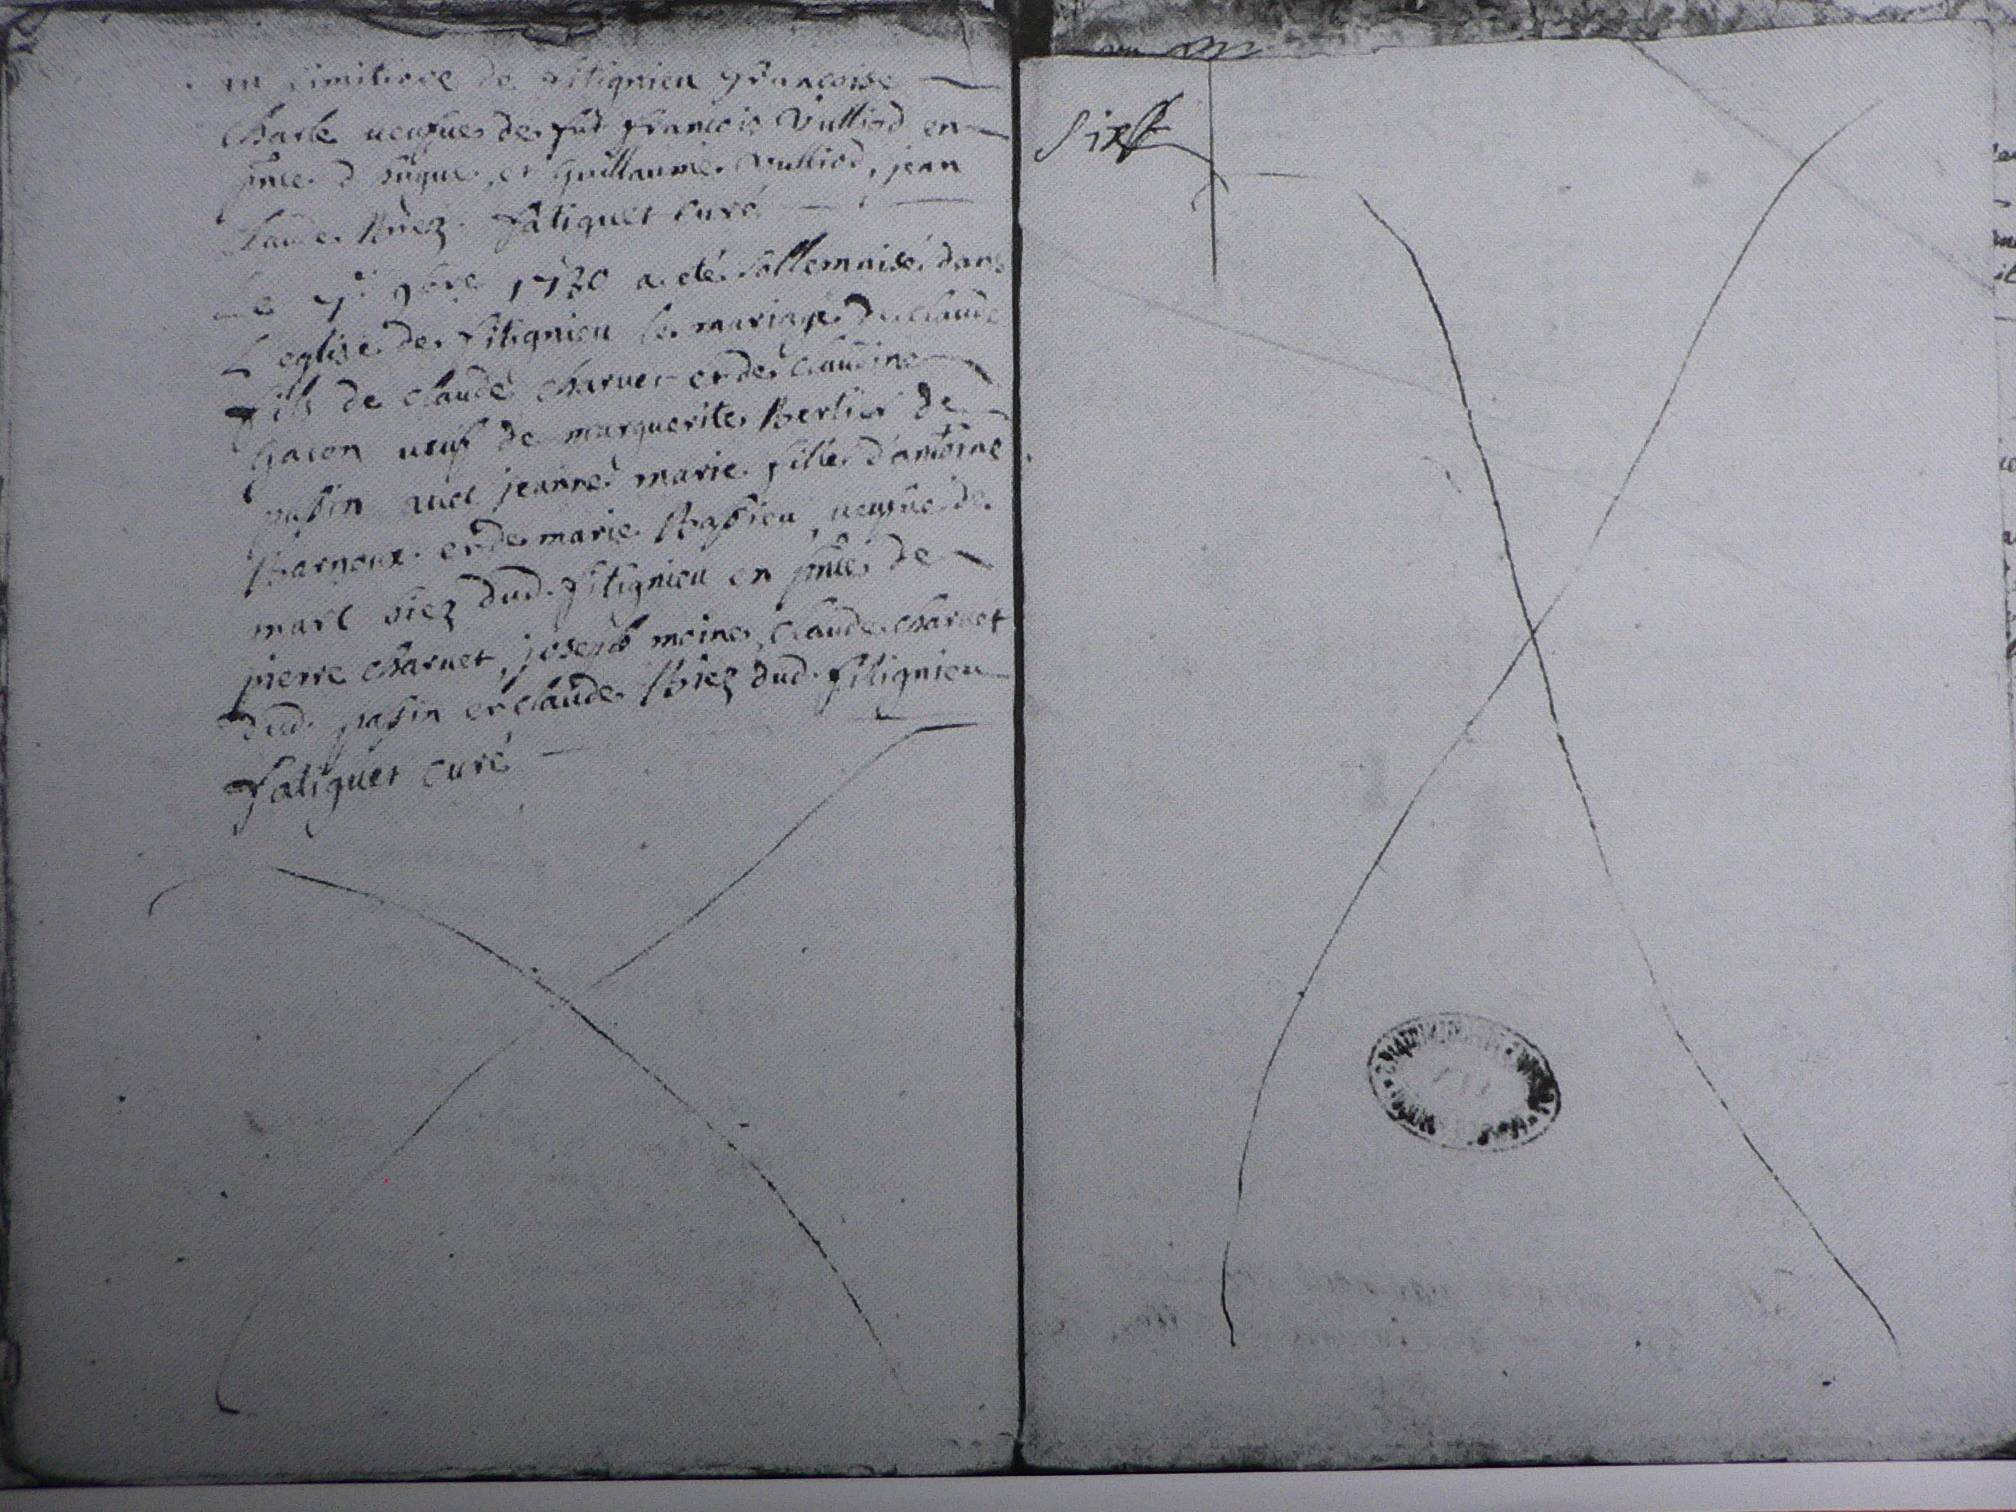 cimitiere de fitignieu françoise
Charle veufue de fud françois Vulliod en
pnce d hugue, et Guillaume Vulliod, jean
claude Briez. fatiquet curé
Le 7e 9bre 1730 a eté sollemnisé dans
L'eglise de fitignieu le mariage de claude
fils de claude charuet et de claudine
Gacon ueuf de marguerite Bertier de
passin auec jeanne marie fille d'antoine
et de marie Bassieu, ueufue de
marc biez dud. fitignieu en pnce de
pierre charuet, joseph moine, claude charuet
dud. passin et claude Biez dud. fitignieu
fatiquet curé